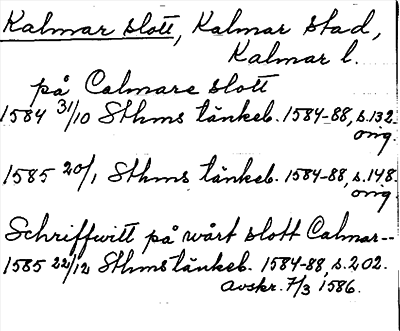 Kalmar slott, Kalmar stad,
Kalmar l.
på Calmare slott
1584 31/10 Sthms tänkeb. 1584-88, s.132.
orig.
1585 20/1 Sthms tänkeb. 1584-88, s.148.
orig.
Schriffwitt på wårt slott Calmar--
1585 22/12 Sthms tänkeb. 1584-88, s.202.
avskr. 7/3 1586.